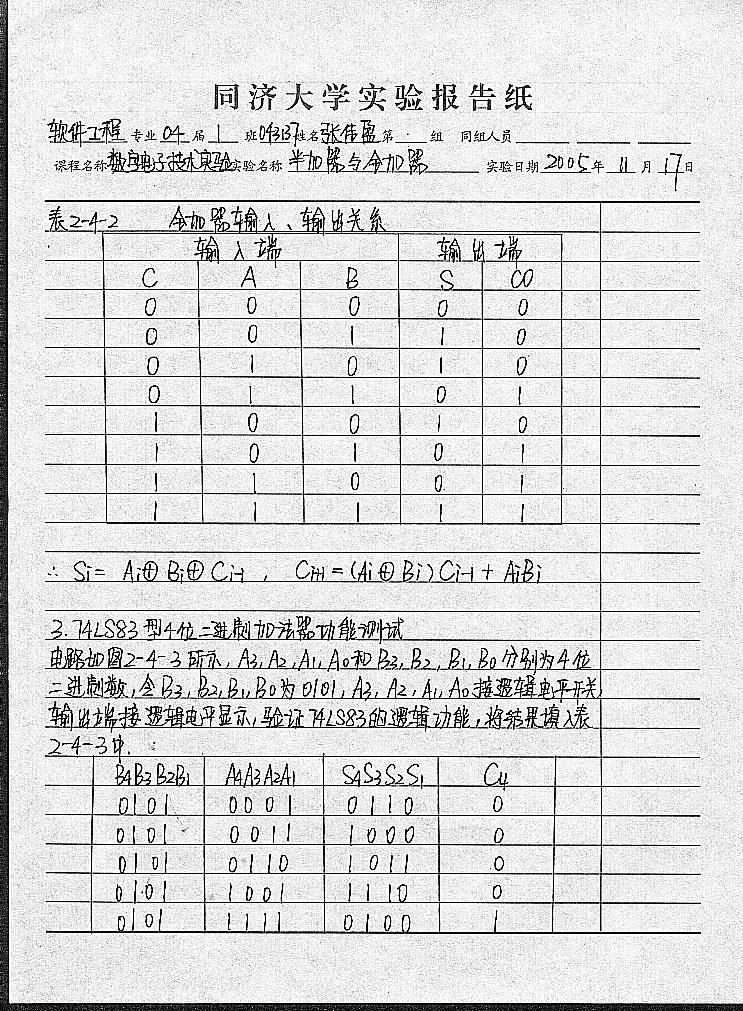 同济大学实验报告纸
软件工程 专业 04 届 1 班 043137 姓名 张伟盈 第 组 同组人员
课程名称 数字电子技术实验 实验名称 半加器与全加器 实验日期 2005 年 11 月 17 日
表2-4-2 全加器输入、输出关系
输入端 输出端
C A B S CO
0 0 0 0 0
0 0 1 1 0
0 1 0 1 0
0 1 1 0 1
1 0 0 1 0
1 0 1 0 1
1 1 0 0 1
1 1 1 1 1
∴ Si = Ai⊕Bi⊕Ci-1 , Ci+1 = (Ai⊕Bi)Ci-1 + AiBi
3.74LS83型4位二进制加法器功能测试
电路如图2-4-3所示,A3,A2,A1,A0和B3,B2,B1,B0分别为4位
二进制数,令B3,B2,B1,B0为0101,A3,A2,A1,A0接逻辑电平开关,
输出端接逻辑电平显示,验证74LS83的逻辑功能,将结果填入表
2-4-3中.
B4B3B2B1 A4A3A2A1 S4S3S2S1 C4
0101 0001 0110 0
0101 0011 1000 0
0101 0110 1011 0
0101 1001 1110 0
0101 1111 0100 1